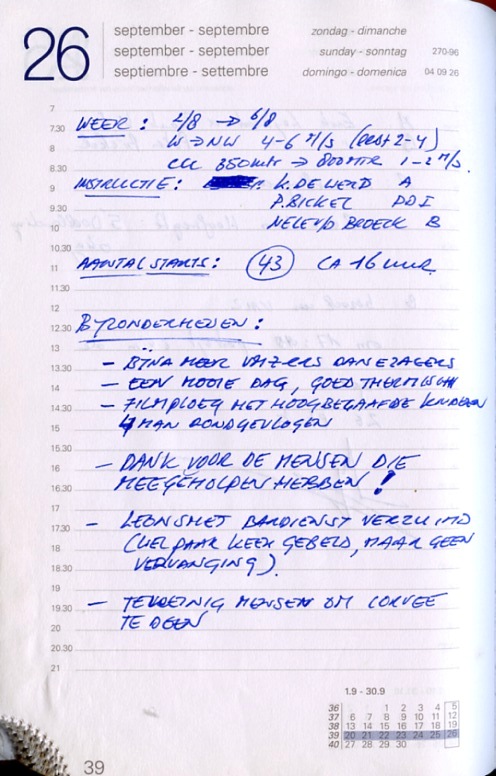 26
september - septembre
september - september
septiembre - settembre
zondag - dimanche
sunday - sonntag
domingo - domenica
270-96
04 09 26
7
7.30
8
8.30
9
9.30
10
10.30
11
11.30
12
12.30
13
13.30
14
14.30
15
15.30
16
16.30
17
17.30
18
18.30
19
19.30
20
20.30
21
WEER : 2/8 → 6/8
W → NW 4-6 M/S (2-4)
350 MTR → 800 MTR 1-2 M/S.
INSTRUCTIE : K. DE WERD A
P. BICKEL DDI
NEL V/D BROECK B
AANTAL STARTS : 43 CA 16 UUR
BYZONDERHEDEN :
- BYNA MEER DAN
- EEN MOOIE DAG, GOED THERMISCH
- FILMPLOEG MET HOOGBEGAAFDE KINDEREN
4 MAN RONDGEVLOGEN
- DANK VOOR DE MENSEN DIE
MEEGEHOLPEN HEBBEN !
- LEON SMET BARDIENST VERZUIMD
(WEL PAAR KEER GEBELD, MAAR GEEN
VERVANGING).
- TE WEINIG MENSEN OM CORVEE
TE DOEN
1.9 - 30.9
36 1 2 3 4 5
37 6 7 8 9 10 11 12
38 13 14 15 16 17 18 19
39 20 21 22 23 24 25 26
40 27 28 29 30
39